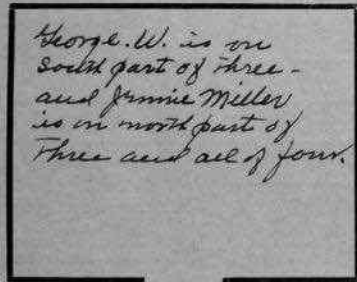 George. W. is on
South part of three -
and Jennie Miller
is on north part of
three and all of four.